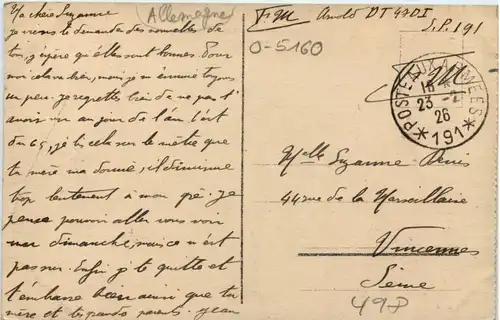 Ma chère Suzanne
je viens te demander des nouvelles de
toi, j'espère qu'elles sont bonnes. Pour
moi cela va bien, mais je m'ennuie toujours
un peu. Je regrette bien de ne pas t'
avoir vu au jour de l'an. C'est
du 65, je lis cela sur le mètre que
ta mère m'a donné, il diminue
trop lentement à mon gré. Je
pense pouvoir aller vous voir
un dimanche, mais ce n'est
pas sur. Enfin je te quitte et
t'embrasse bien ainsi que ta
mère et tes grands parents. Jean
Allemagne
FM Arnold DT 47DI
S.P. 191
0-5160
FM
POSTE AUX ARMEES
18
23 - 2
26
191
Melle Suzanne Denis
44 rue de la Marseillaire
Vincennes
Seine
498